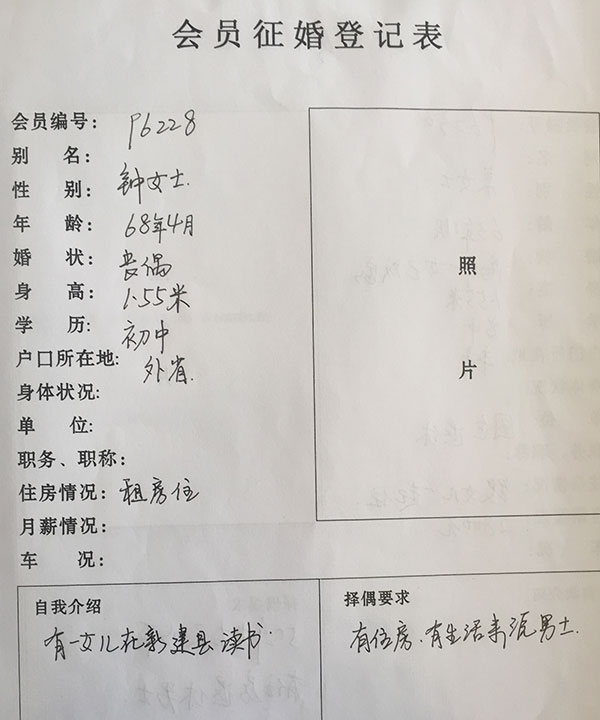 会员征婚登记表
会员编号: P6228
别 名:
性 别: 钟女士.
年 龄: 68年4月
婚 状: 丧偶
身 高: 1.55米
学 历: 初中
户口所在地: 外省.
身体状况:
单 位:
职务、职称:
住房情况: 租房住
月薪情况:
车 况:
照
片
自我介绍
有一女儿在新建县读书.
择偶要求
有住房、有生活来源男士.